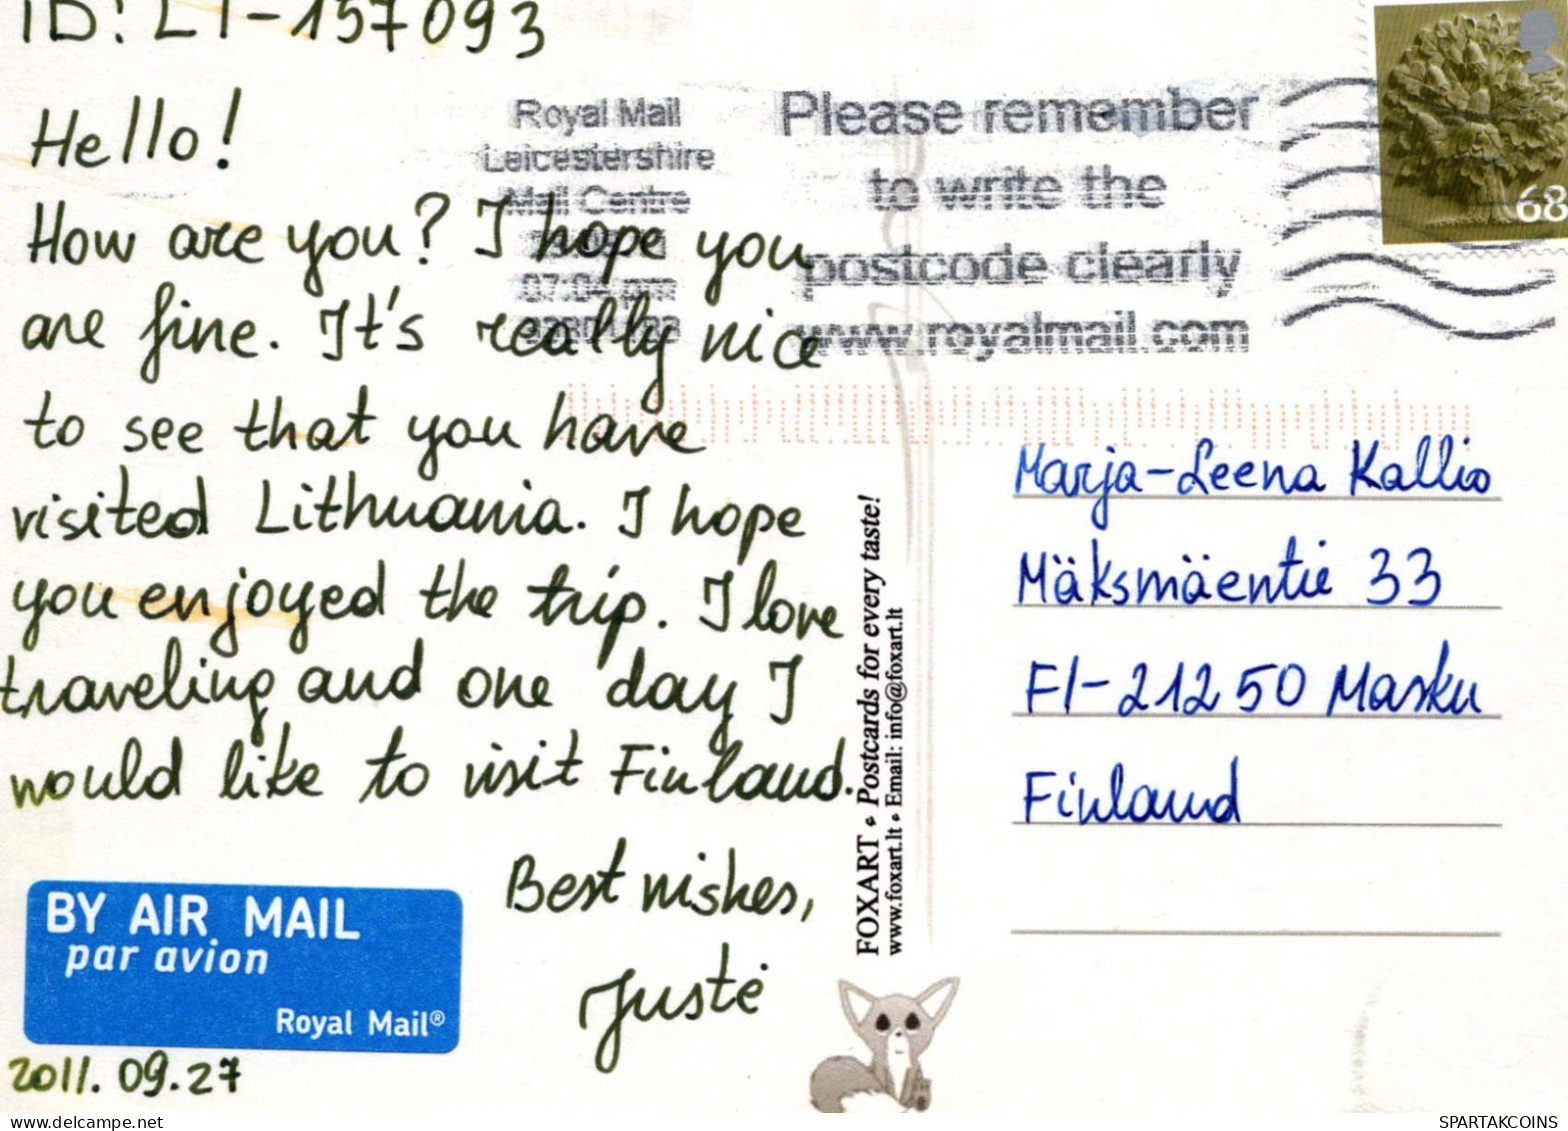 ID: LT-157093
Hello!
How are you? I hope you
are fine. It's really nice
to see that you have
visited Lithuania. I hope
you enjoyed the trip. I love
traveling and one day I
would like to visit Finland.
Best wishes,
Justė
BY AIR MAIL
par avion
Royal Mail®
2011.09.27
Royal Mail
Leicestershire
Mail Centre
07:04 pm
Please remember
to write the
postcode clearly
www.royalmail.com
68
FOXART • Postcards for every taste!
www.foxart.lt • Email: info@foxart.lt
Marja-Leena Kallio
Mäksmäentie 33
FI-21250 Masku
Finland
SPARTAKCOINS